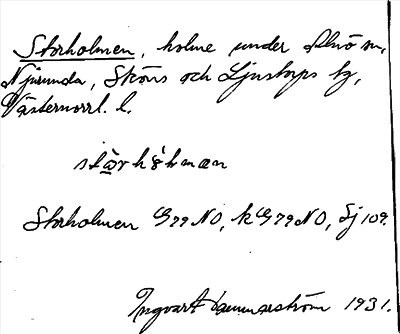 Storholmen, holme under Alnö sn,
Njurunda, Sköns och Ljustorps tg,
Västernorrl. l.
stòrhòḷmæn
Storholmen G79NO, kG79NO, Sj 109.
Ingvart Hammarström 1931.